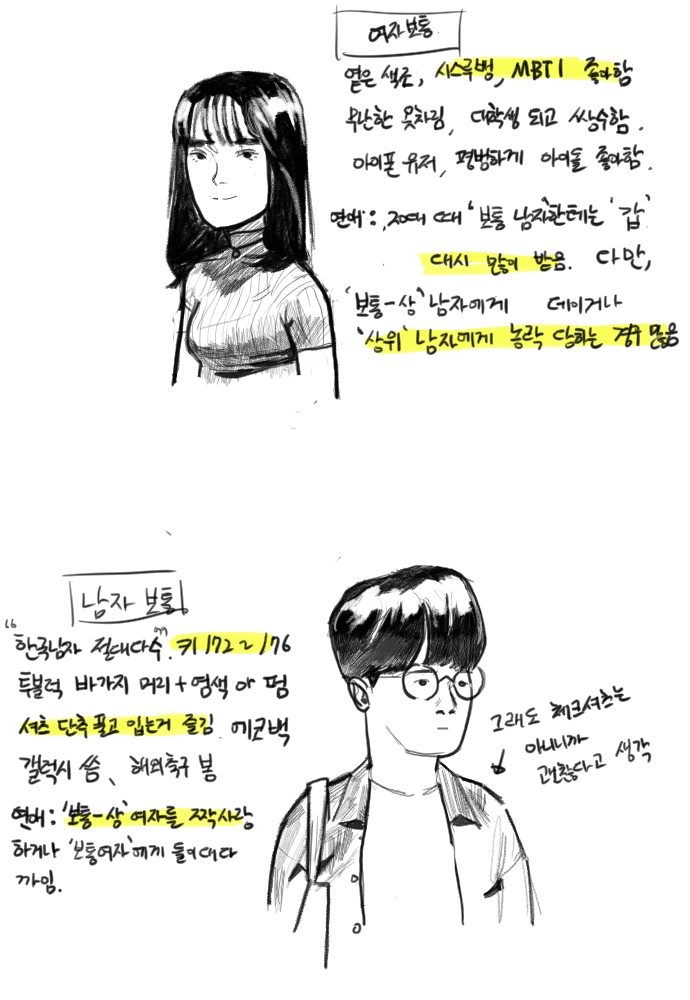 여자 보통
옅은 색조, 시스루뱅, MBTI 좋아함
무난한 옷차림, 대학생 되고 쌍수함.
아이폰 유저, 평범하게 아이돌 좋아함.
연애 : 20대 때 '보통 남자'한테는 '갑'
대시 많이 받음. 다만,
'보통-상' 남자에게 데이거나
'상위' 남자에게 농락 당하는 경우 많음
남자 보통
"한국남자 절대다수." 키 172~176
투블럭 바가지 머리 + 염색 or 펌
셔츠 단추 풀고 입는거 즐김. 에코백
갤럭시 씀, 해외축구 봄
연애 : '보통-상' 여자를 짝사랑
하거나 '보통여자'에게 들이대다
까임.
그래도 체크셔츠는
아니니까
괜찮다고 생각